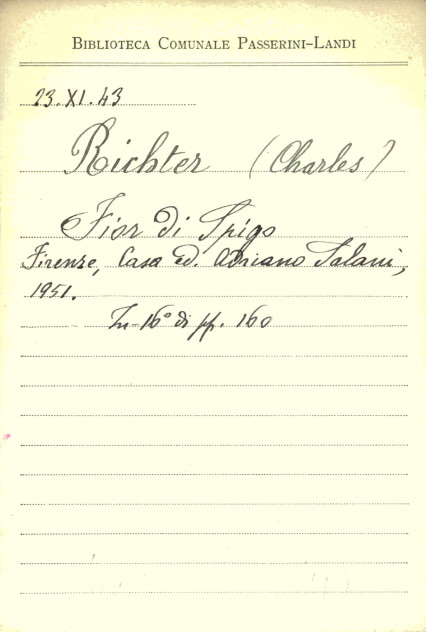 BIBLIOTECA COMUNALE PASSERINI-LANDI
23.XI.43
Richter (Charles)
Fior di Spigo
Firenze, Casa ed. Adriano Salani,
1951.
In-16° di pp. 160